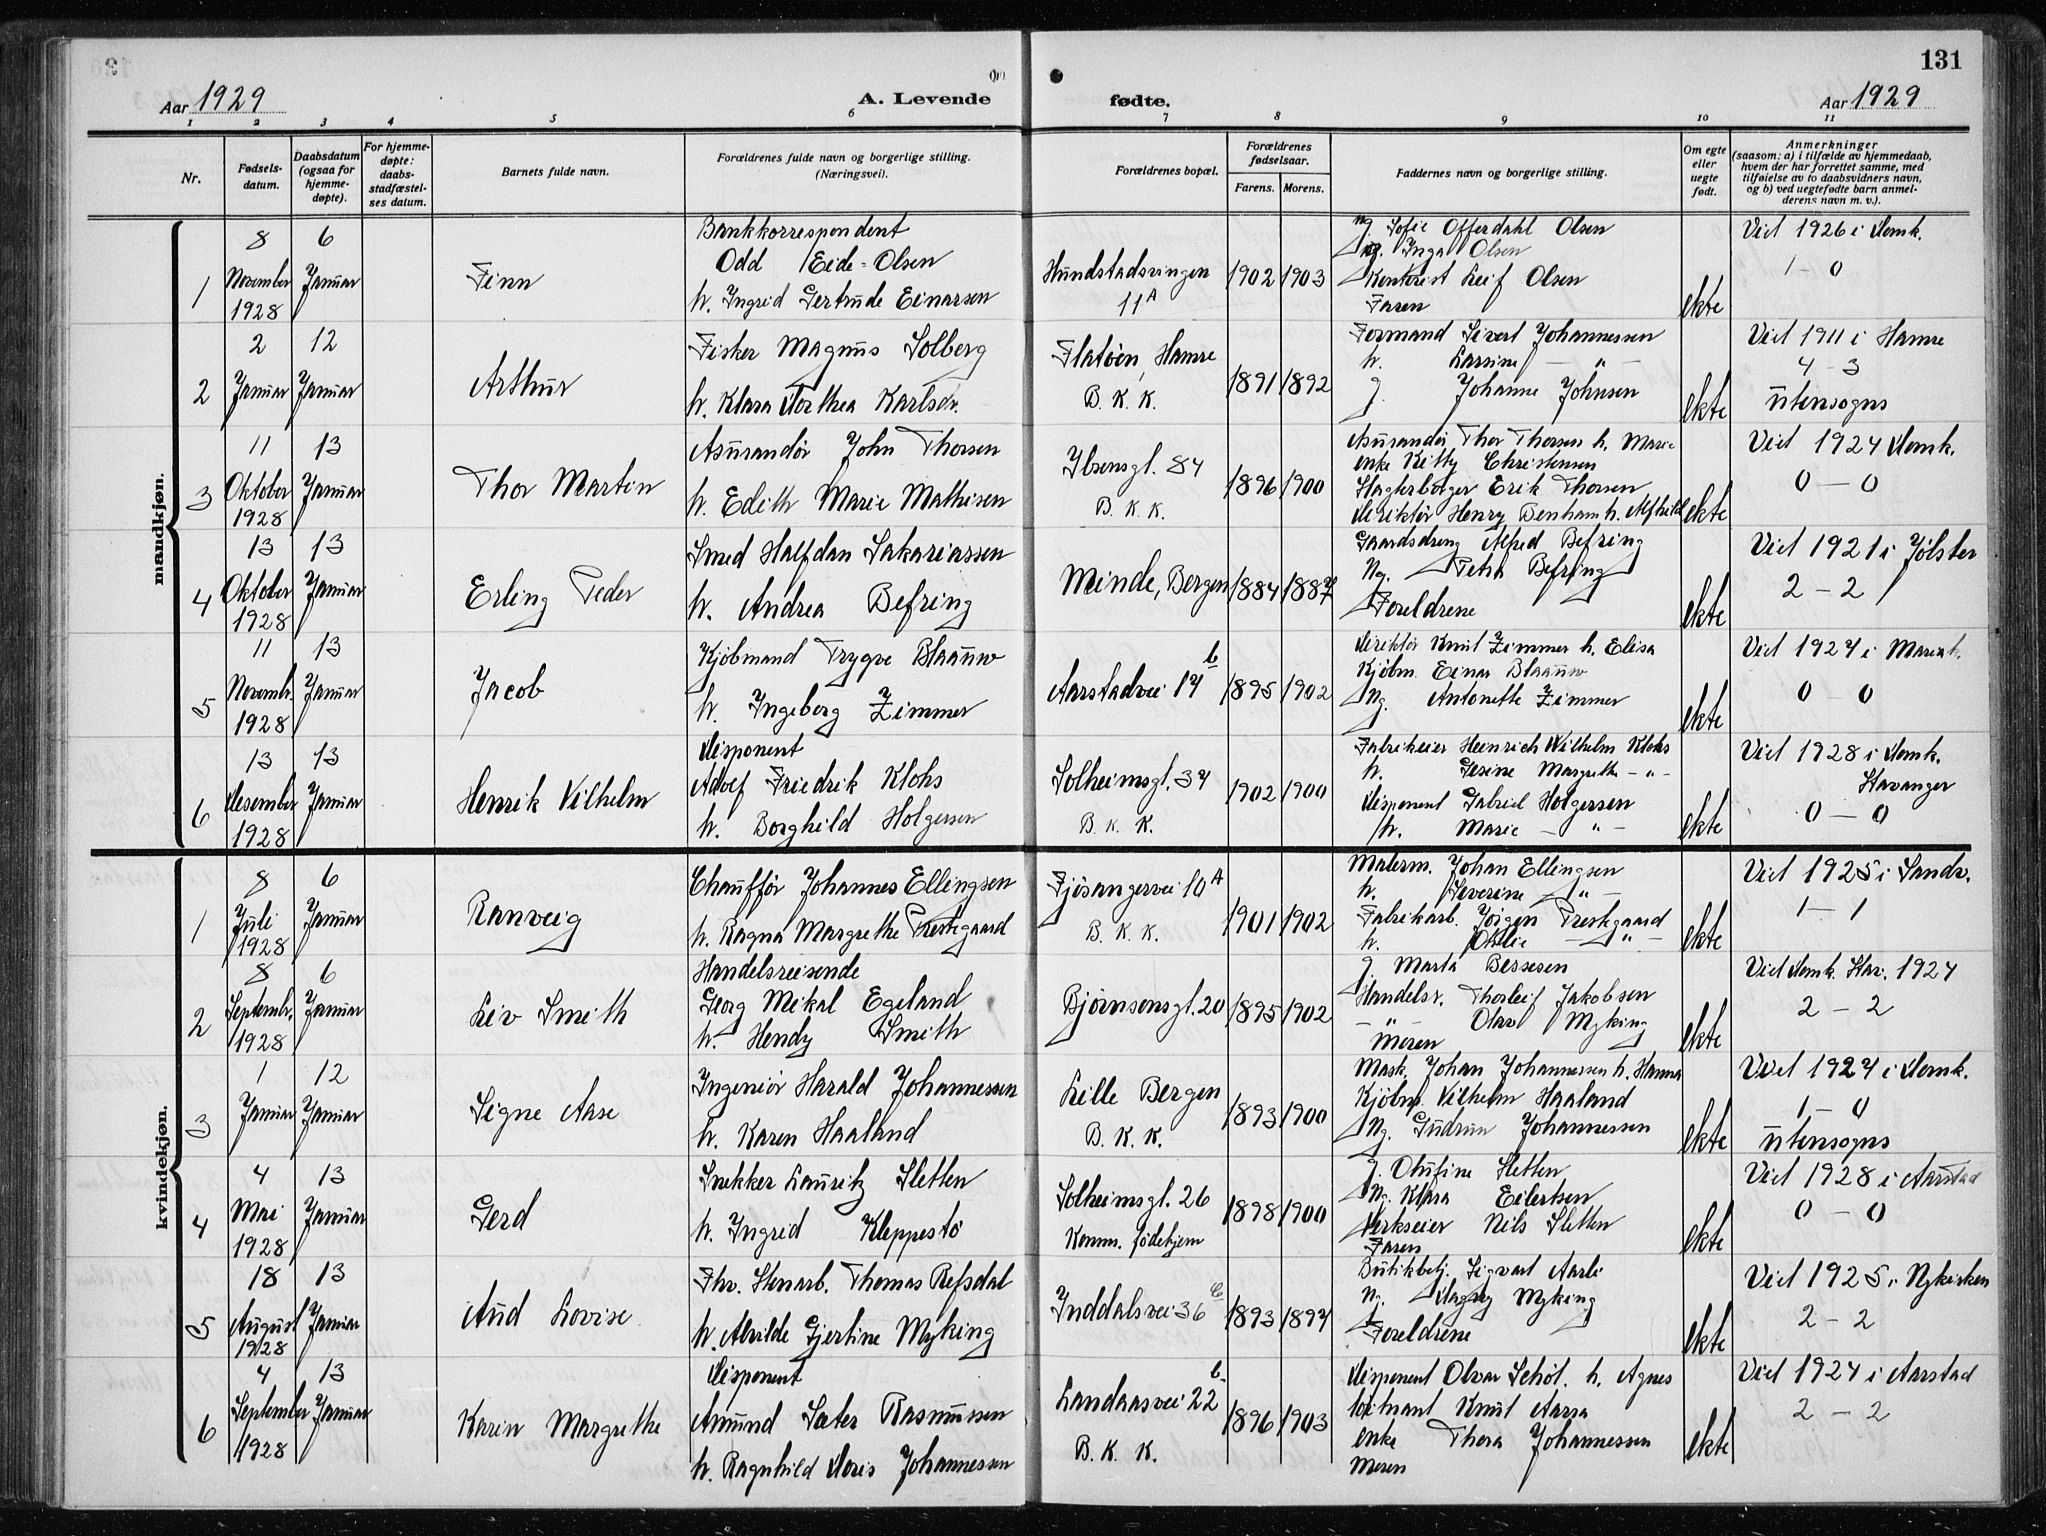 131
Aar 1929
A. Levende
fødte.
Aar 1929
1 2 3 4 5 6 7 8 9 10 11
Nr.
Fødsels-
datum.
Daabsdatum
(ogsaa for
hjemme-
døpte).
For hjemme-
døpte:
daabs-
stadfæstel-
ses datum.
Barnets fulde navn.
Forældrenes fulde navn og borgerlige stilling.
(Næringsvei).
Forældrenes bopæl.
Forældrenes
fødselsaar.
Farens. Morens.
Faddernes navn og borgerlige stilling.
Om egte
eller
uegte
født.
Anmerkninger
(saasom: a) i tilfælde av hjemmedaab,
hvem der har forrettet samme, med
tilføielse av to daabsvidners navn,
og b) ved uegtefødte barn anmel-
derens navn m. v.).
mandkjøn.
1
8
November
1928
6
Januar
Finn
Bankkorrespondent
Odd Eide-Olsen
h. Ingrid Gertrude Einarsen
Hundstadsvingen
11A
1902 1903
ug. Sofie Offerdahl Olsen
ug. Inga Olsen
Kontorist Leif Olsen
Faren
ekte
Viet 1926 i Domk.
1 - 0
2
2
Januar
12
Januar
Arthur
Fisker Magnus Solberg
h. Klara Dorthea Karlsdr.
Flatøen, Hamre
B. K. K.
1891 1892
Formand Sivert Johannessen
h. Larsine - " -
g. Johanne Johnsen
ekte
Viet 1911 i Hamre
4 - 3
utensogns
3
11
Oktober
1928
13
Januar
Thor Martin
Asurandør John Thorsen
h. Edith Marie Mathisen
Ibsensgt. 84
B. K. K.
1896 1900
Asurandør Thor Thorsen h. Marie
enke Kitty Christensen
Skogerbøtger Erik Thorsen
Direktør Henry Denham h. Alfhild
ekte
Viet 1924 Domk.
0 - 0
4
13
Oktober
1928
13
Januar
Erling Peder
Smed Halfdan Sakariassen
h. Andrea Befring
Minde, Bergen
1884 1887
Gaardsdreng Alfred Befring
Ug. Petra Befring
Foreldrene
ekte
Viet 1921 i Jølster
2 - 2
5
11
Novembr.
1928
13
Januar
Jacob
Kjøbmand Trygve Blaauw
h. Ingeborg Zimmer
Aarstadvei 17 b
1895 1902
Direktør Knut Zimmer h. Elisa
Kjøbm. Einar Blaauw
Ug. Antonette Zimmer
ekte
Viet 1927 i Mariak.
0 - 0
6
13
Desember
1928
13
Januar
Henrik Vilhelm
Disponent
Adolf Friedrik Klohs
h. Borghild Holgersen
Solheimsgt. 37
B. K. K.
1902 1900
Fabrikeier Heinrich Wilhelm Klohs
h. Gesine Margrethe - " -
Disponent Gabriel Holgersen
h. Marie - " -
ekte
Viet 1928 i Domk.
Stavanger
0 - 0
kvindekjøn.
1
8
Juli
1928
6
Januar
Ranveig
Chauffør Johannes Ellingsen
h. Ragna Margrethe Prestegaard
Fjøsangervei 10A
B. K. K.
1901 1902
Malerm. Johan Ellingsen
h. Severine - " -
Fabrikarb. Jørgen Prestgaard
h. Othelie - " -
ekte
Viet 1925 i Sandv.
1 - 1
2
8
Septembr.
1928
6
Januar
Liv Smith
Handelsreisende
Georg Mikal Egeland
h. Hendy Smith
Bjørnsonsgt. 20
1895 1902
g. Marta Bessesen
Handelsr. Thorleif Jakobsen
- " - Olav Myking
Moren
ekte
Viet Domk. Stav. 1924
2 - 2
3
1
Januar
12
Januar
Signe Aase
Ingeniør Harald Johannessen
h. Karen Haaland
Lille Bergen
B. K. K.
1893 1900
Mask. Johan Johannessen h. Hanna
Kjøbm. Vilhelm Haaland
Ug. Gudrun Johannessen
ekte
Viet 1927 i Domk.
1 - 0
utensogns
4
4
Mai
1928
13
Januar
Gerd
Snekker Lauritz Sletten
h. Ingrid Kleppestø
Solheimsgt. 26
Komm. fødehjem
1898 1900
g. Olufine Sletten
Ug. Klara Eilertsen
Verkseier Nils Sletten
Faren
ekte
Viet 1928 i Aarstad
0 - 0
5
18
August
1928
13
Januar
Aud Lovise
Fhv. Stenarb. Thomas Refsdal
h. Alvilde Gjertine Myking
Inddalsvei 36 c
1893 1897
Butikbetj. Sigvart Aarli
Ug. Dagny Myking
Foreldrene
ekte
Viet 1925 i Nykirken
2 - 2
6
4
September
1928
13
Januar
Karin Margrethe
Disponent
Amund Sæter Rasmussen
h. Ragnhild Doris Johannessen
Landaasvei 22 b.
B. K. K.
1896 1903
Disponent Olvar Schöt. h. Agnes
løitnant Knut Aarra
enke Thora Johannessen
Moren
ekte
Viet 1924 i Aarstad
2 - 2